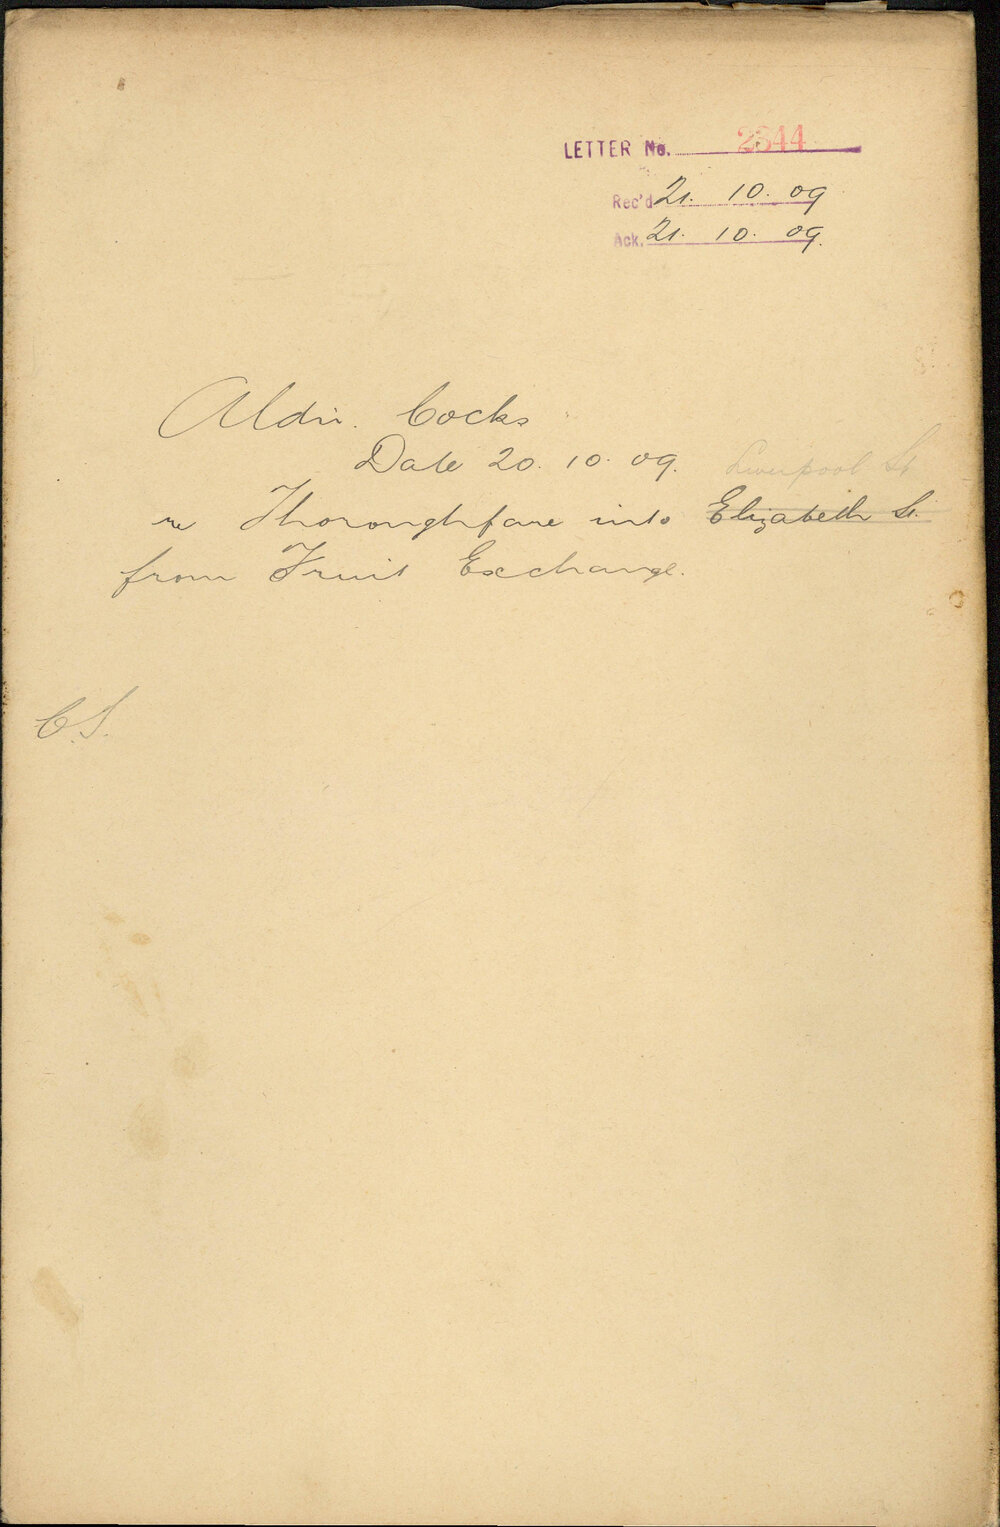 LETTER No. 2544
Rec'd 21. 10. 09
Ack. 21. 10. 09.
Aldn. Cocks
Date 20. 10. 09. Liverpool St
re Thoroughfare into Elizabeth St.
from Fruit Exchange.
C.S.